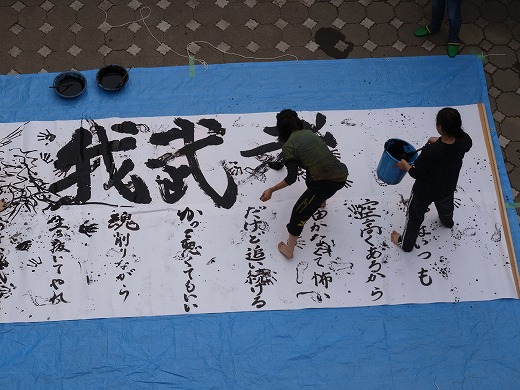 我武
はいつも
空高くあるから
かなくて怖い
だけど追い続ける
かっこ悪くてもいい
魂削りながら
生き抜いてやれ